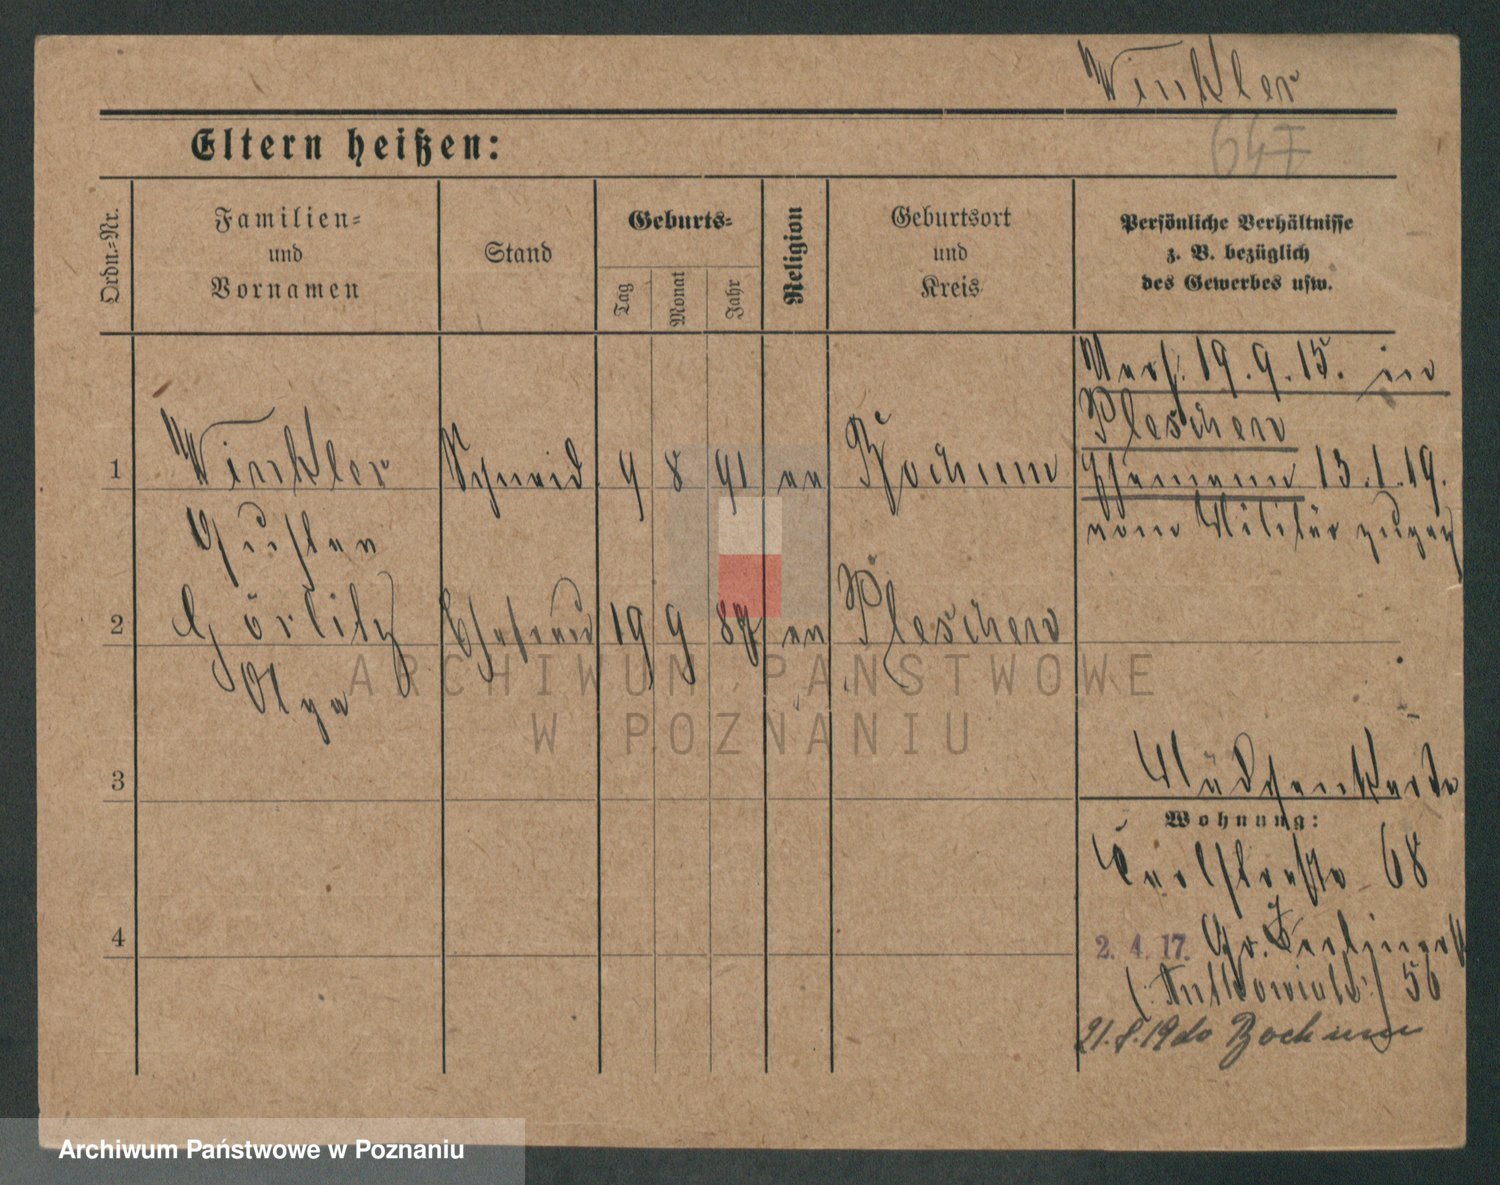 Winkler
647
Eltern heißen:
Ordn.=Nr.
Familien=
und
Vornamen
Stand
Geburts=
Tag
Monat
Jahr
Religion
Geburtsort
und
Kreis
Persönliche Verhältnisse
z. B. bezüglich
des Gewerbes usw.
Verh. 19.9.15. in
Pleschen
1 Winkler Schneid. 9 8 91 ev Bochum
Ehemann 13.1.19.
vom Militär zugez
Gustav
2 Görlitz Ehefrau 19 9 89 ev Pleschen
Olga
ARCHIWUM PAŃSTWOWE
W POZNANIU
3
Mädchenkarte
Wohnung:
68
4
2. 4. 17. Gr. Berlinerst
(: Antkowiak :) 56
21.8.19 do Bochum
Archiwum Państwowe w Poznaniu